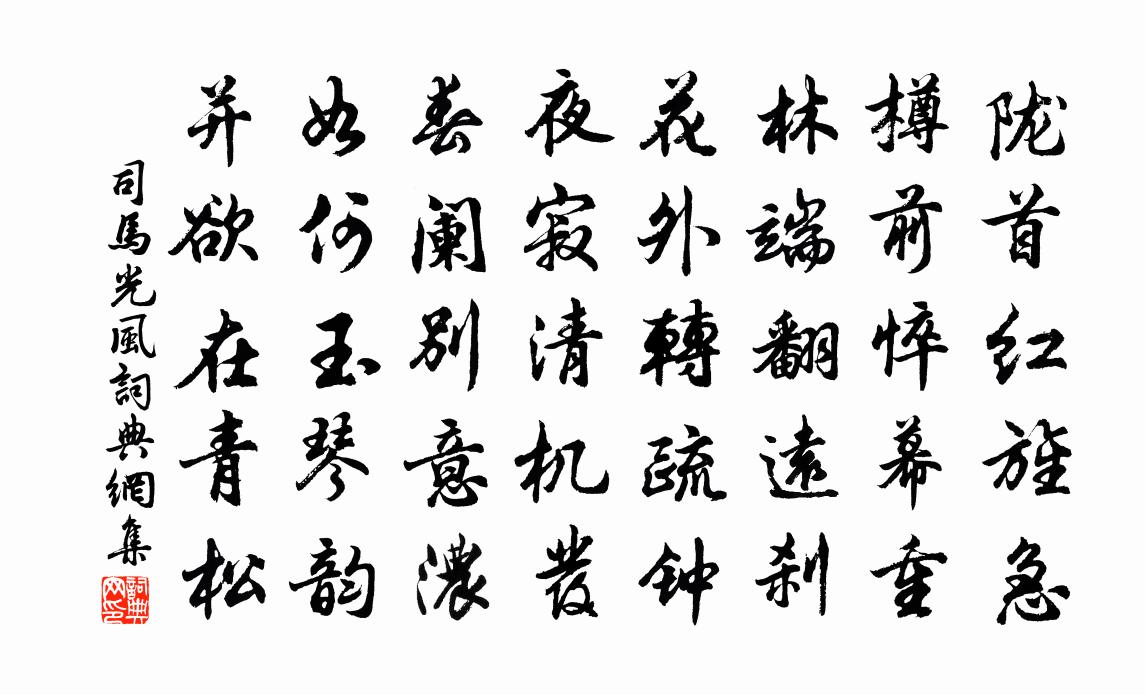 陇首红旌急
樽前悴幕重
林端翻遠刹
花外轉疏钟
夜寂清机發
春阑别意濃
如何玉琴韵
并欲在青松
司馬光風詞典網集
詞典网印